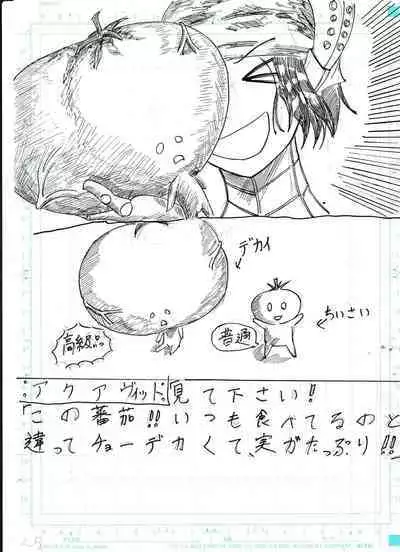 デカイ
ちいさい
高級品
普通
:アクアヴィッド:見て下さい!
「この蕃茄!!いつも食べてるのと
違ってチョーデカくて、実がたっぷり!!